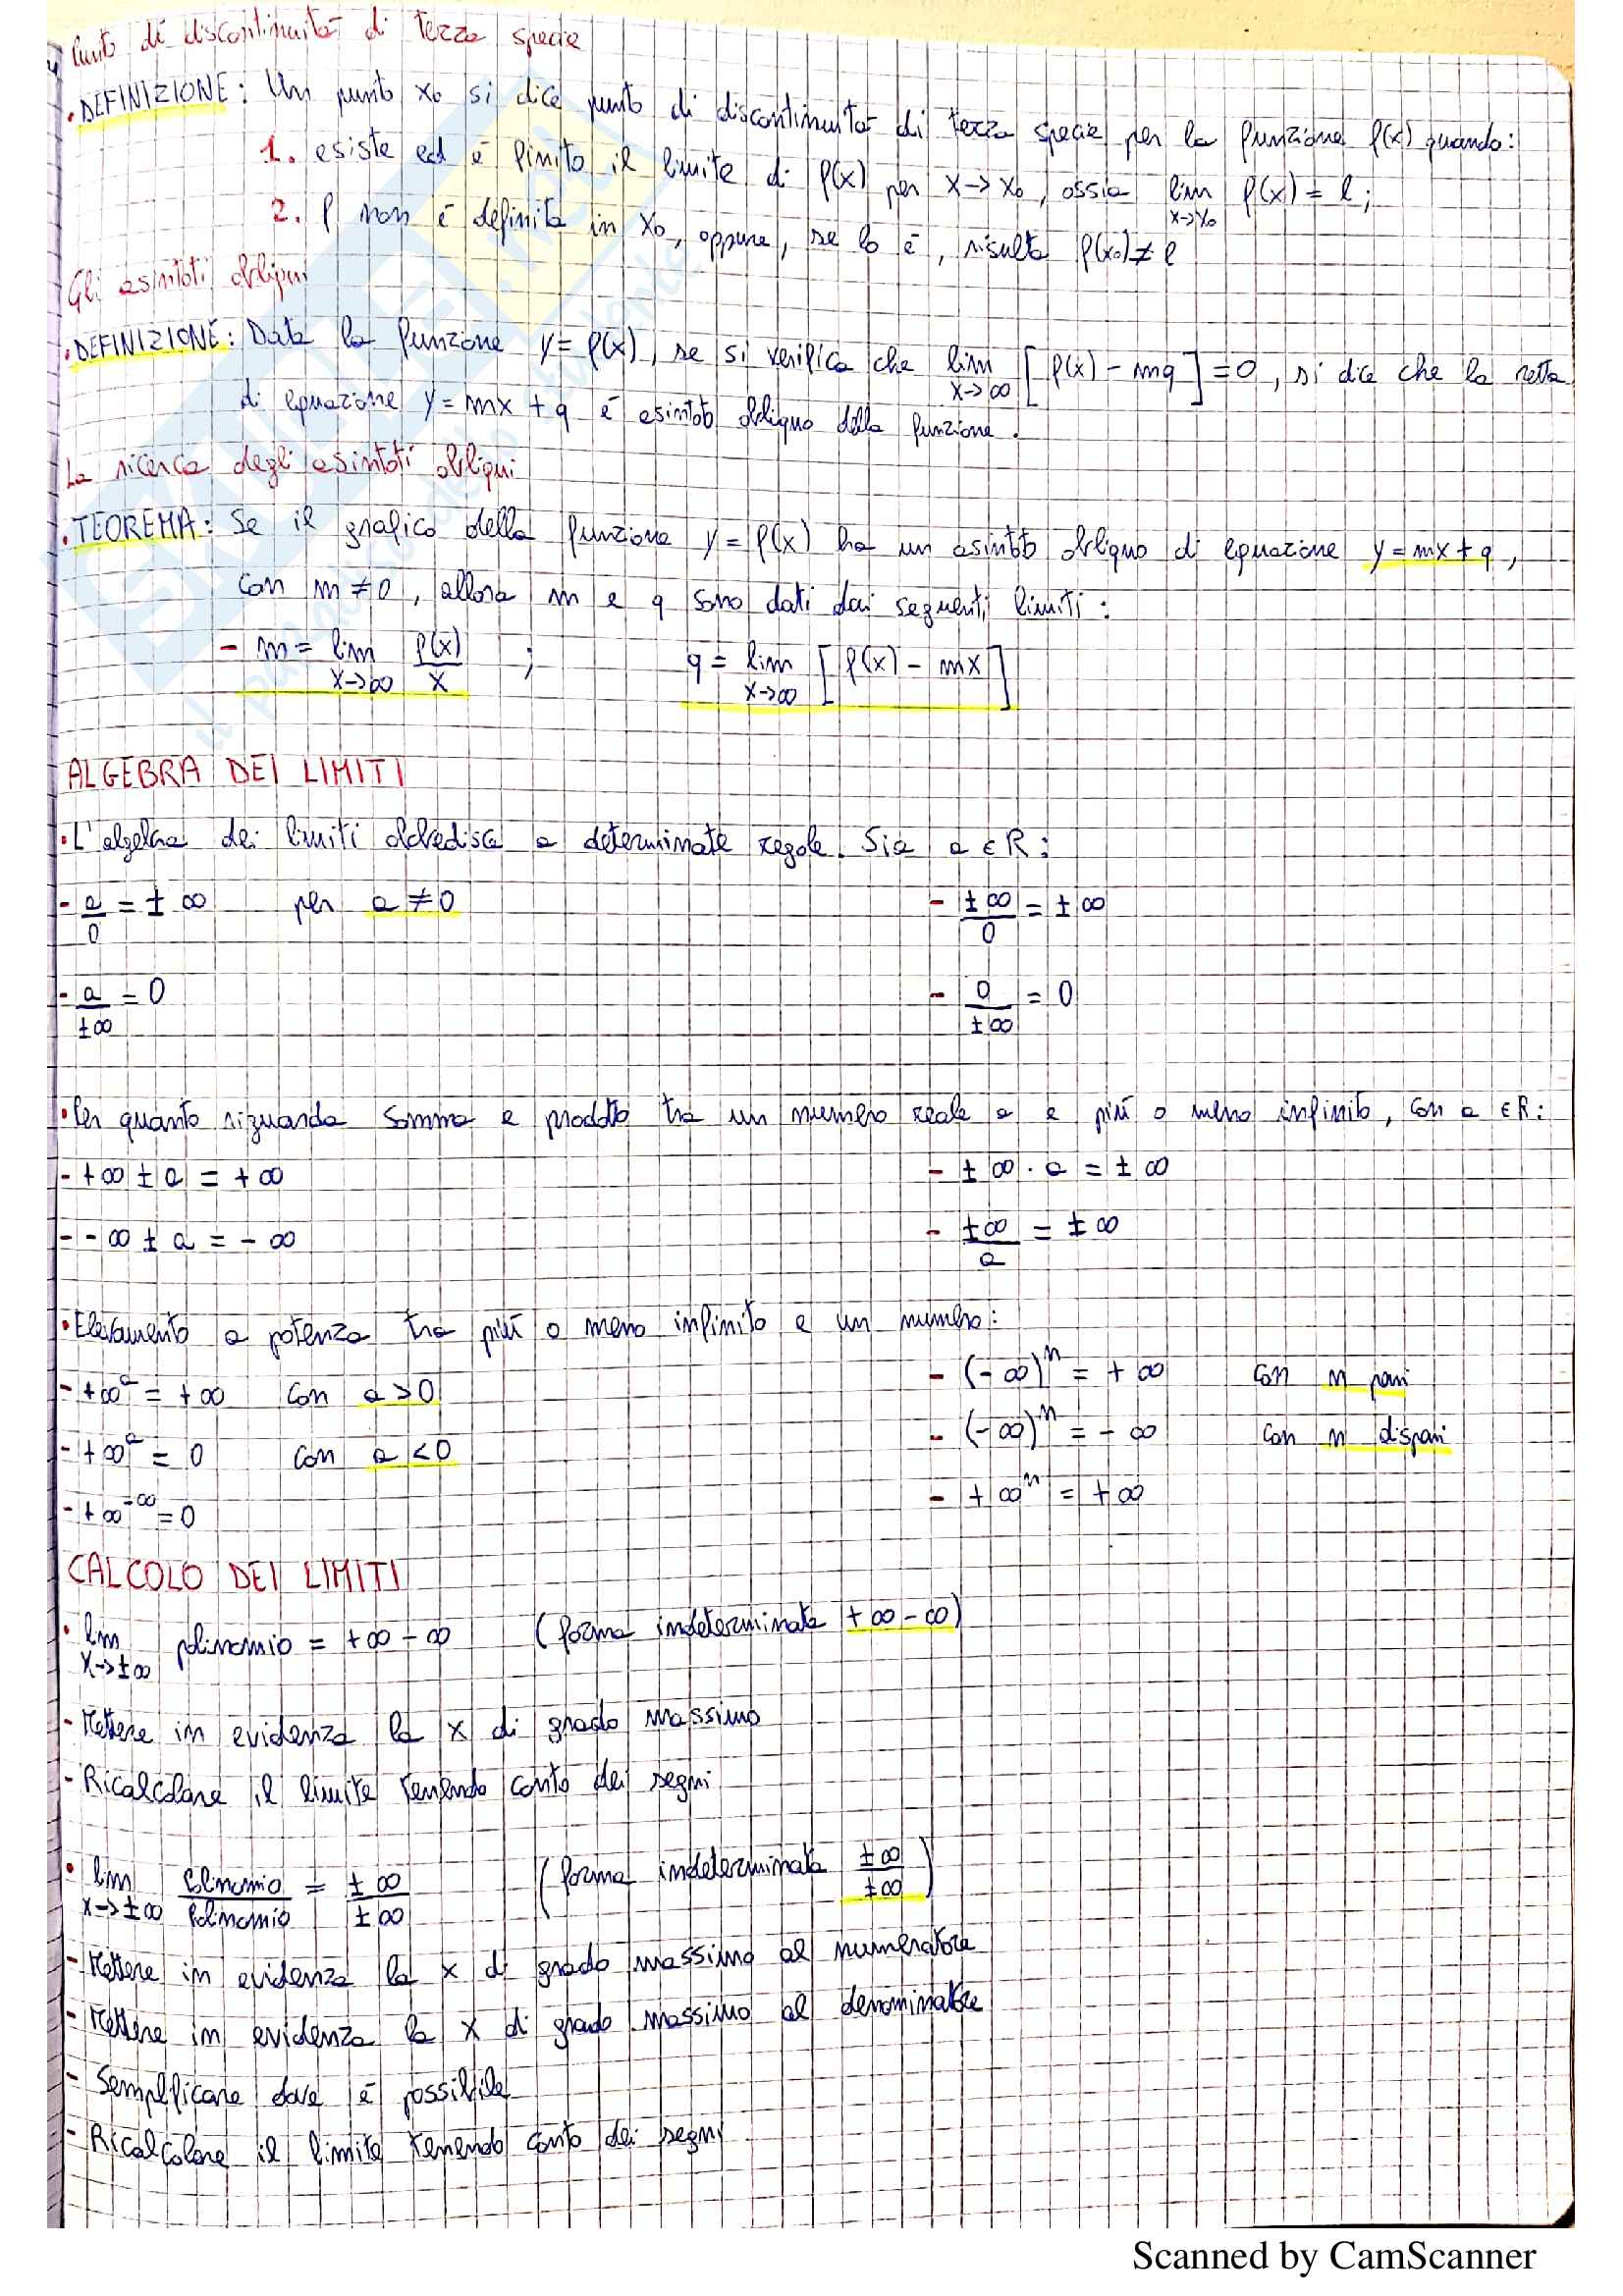 Punto di discontinuità di terza specie
• DEFINIZIONE: Un punto x₀ si dice punto di discontinuità di terza specie per la funzione f(x) quando:
1. esiste ed è finito il limite di f(x) per x→x₀, ossia lim x→x₀ f(x) = l;
2. f non è definita in x₀, oppure, se lo è, risulta f(x₀) ≠ l
Gli asintoti obliqui
• DEFINIZIONE: Data la funzione y = f(x), se si verifica che lim x→∞ [f(x) - mq] = 0, si dice che la retta
di equazione y = mx + q è asintoto obliquo della funzione.
La ricerca degli asintoti obliqui
• TEOREMA: Se il grafico della funzione y = f(x) ha un asintoto obliquo di equazione y = mx + q,
con m ≠ 0, allora m e q sono dati dai seguenti limiti:
- m = lim x→∞ f(x)/x ; q = lim x→∞ [f(x) - mx]
ALGEBRA DEI LIMITI
• L'algebra dei limiti obbedisce a determinate regole. Sia a ∈ R:
- a/0 = ±∞ per a ≠ 0 - ±∞/0 = ±∞
- a/±∞ = 0 - 0/±∞ = 0
• Per quanto riguarda somma e prodotto tra un numero reale a e più o meno infinito, con a ∈ R:
- +∞ ± a = +∞ - ±∞ · a = ±∞
- -∞ ± a = -∞ - ±∞/a = ±∞
• Elevamento a potenza tra più o meno infinito e un numero:
- +∞ᵃ = +∞ con a > 0 - (-∞)ⁿ = +∞ con n pari
- +∞ᵃ = 0 con a < 0 - (-∞)ⁿ = -∞ con n dispari
- +∞^-∞ = 0 - +∞ⁿ = +∞
CALCOLO DEI LIMITI
• lim x→±∞ polinomio = +∞ - ∞ (forma indeterminata +∞ - ∞)
- Mettere in evidenza la x di grado massimo
- Ricalcolare il limite tenendo conto dei segni
• lim x→±∞ Polinomio/Polinomio = ±∞/±∞ (forma indeterminata ±∞/±∞)
- Mettere in evidenza la x di grado massimo al numeratore
- Mettere in evidenza la x di grado massimo al denominatore
- Semplificare dove è possibile
- Ricalcolare il limite tenendo conto dei segni
Scanned by CamScanner